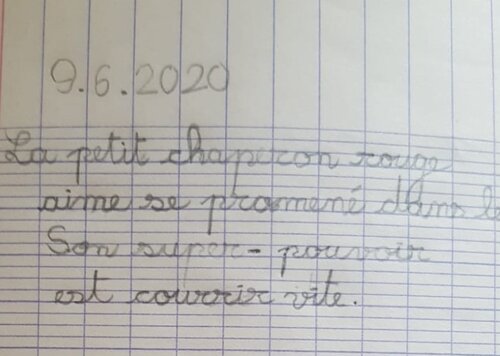 9.6.2020
La petit chaperon rouge
aime se promené dans
Son super-pouvoir
est courrir vite.